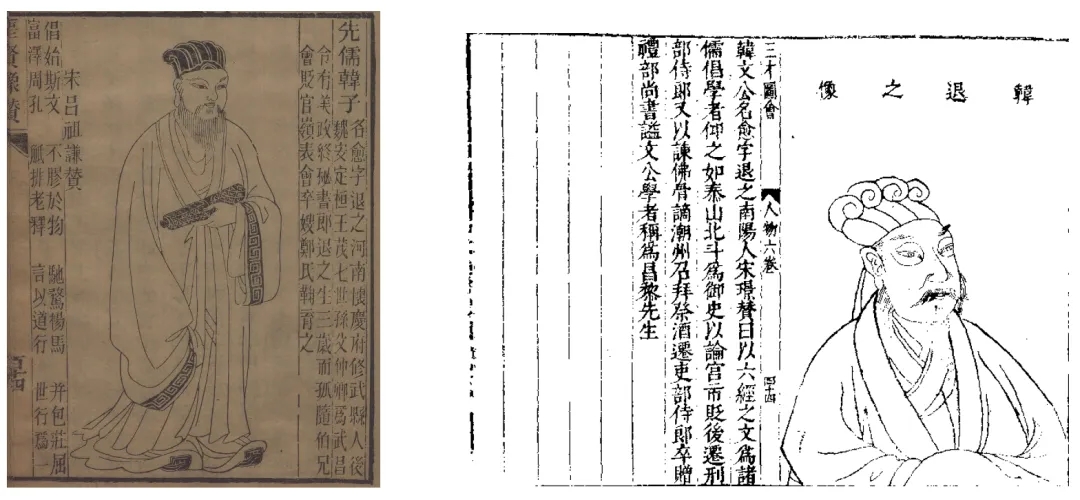 先儒韓子
名愈字退之河南懷慶府修武縣人後
魏安定桓王茂七世孫父仲卿爲武昌
令有美政終秘書郎退之生三歲而孤隨伯兄
會貶官嶺表會卒嫂鄭氏鞠育之
宋呂祖謙贊
倡始斯文 不膠於物 馳騖楊馬 并包莊屈
富澤周孔 觝排老釋 言以道行 世行爲一
聖賢像贊
韓退之像
三才圖會 人物六卷 四十四
韓文公名愈字退之南陽人宋璟贊曰以六經之文爲諸
儒倡學者仰之如泰山北斗爲御史以論宮市貶後遷刑
部侍郎又以諫佛骨謫潮州召拜祭酒遷吏部侍郎卒贈
禮部尚書謚文公學者稱爲昌黎先生